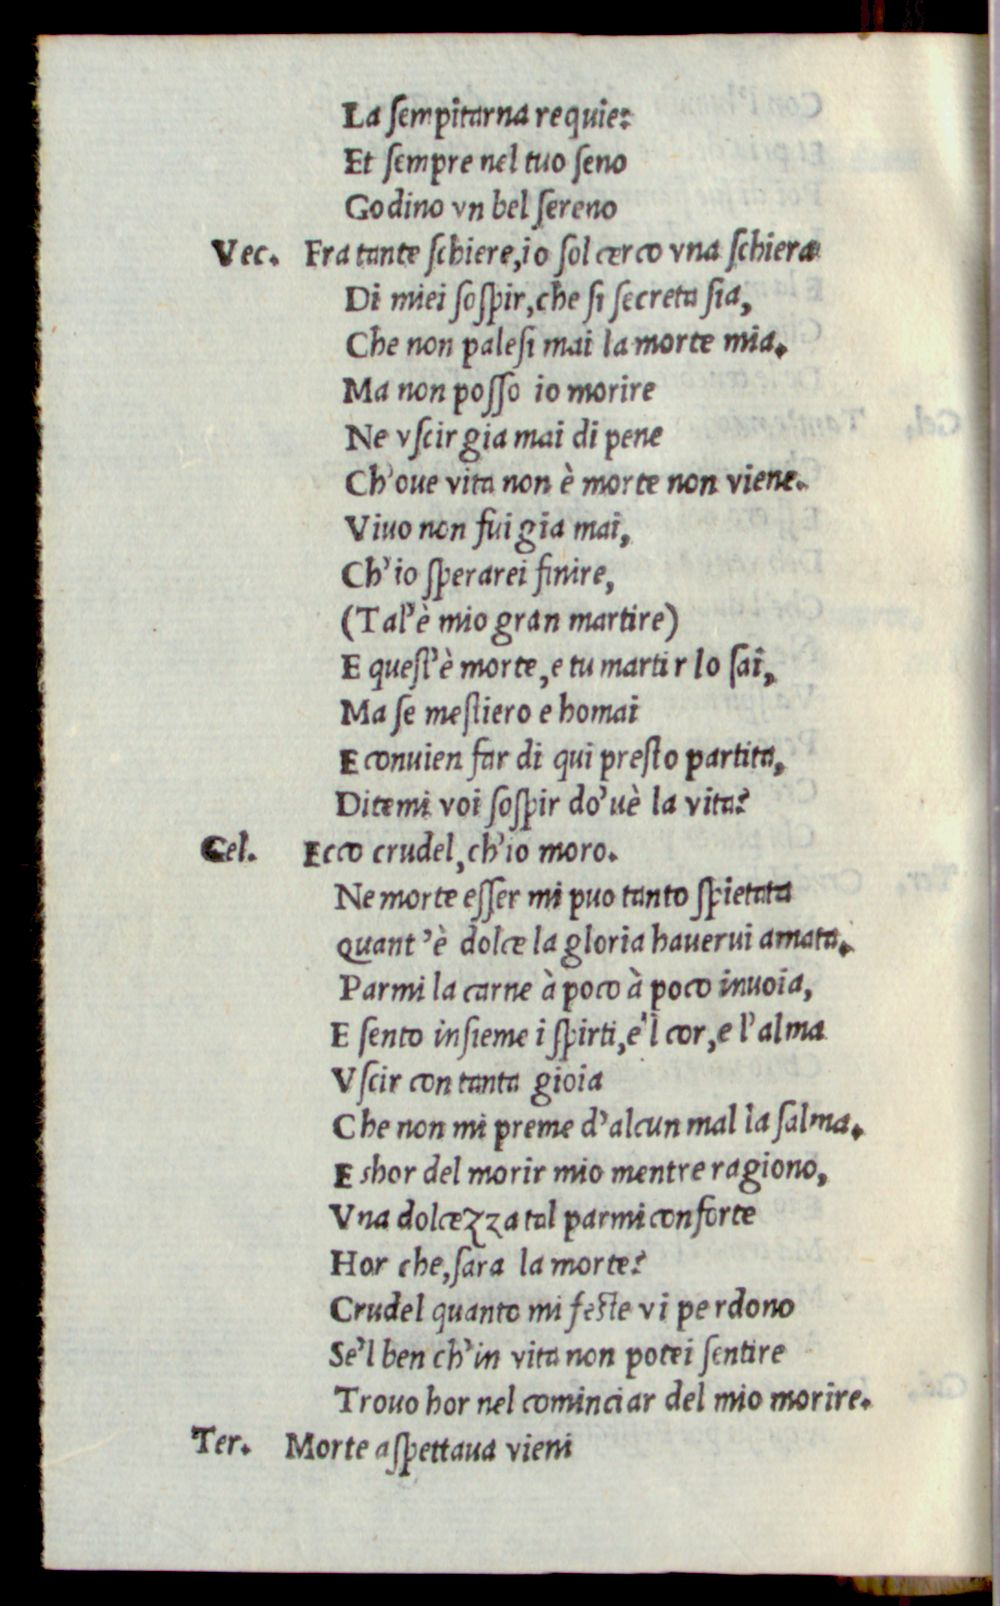 La ſempitarna requie:
Et ſempre nel tuo ſeno
Godino vn bel ſereno
Vec. Fra tante ſchiere, io ſol cerco vna ſchiera
Di miei ſoſpir, che ſi ſecreta ſia,
Che non paleſi mai la morte mia.
Ma non poſſo io morire
Ne vſcir gia mai di pene
Ch'oue vita non è morte non viene.
Viuo non fui gia mai,
Ch'io ſperarei finire,
(Tal'è mio gran martire)
E queſt'è morte, e tu martir lo ſai,
Ma ſe meſtiero e homai
E conuien far di qui preſto partita,
Ditemi voi ſoſpir do'uè la vita?
Cel. Ecco crudel, ch'io moro.
Ne morte eſſer mi puo tanto ſpietata
quant'è dolce la gloria hauerui amata.
Parmi la carne à poco à poco inuoia,
E ſento inſieme i ſpirti, e'l cor, e l'alma
Vſcir con tanta gioia
Che non mi preme d'alcun mal la ſalma.
E shor del morir mio mentre ragiono,
Vna dolcezza tal parmi conforte
Hor che, ſara la morte?
Crudel quanto mi feſte vi perdono
Se'l ben ch'in vita non potei ſentire
Trouo hor nel cominciar del mio morire.
Ter. Morte aſpettaua vieni